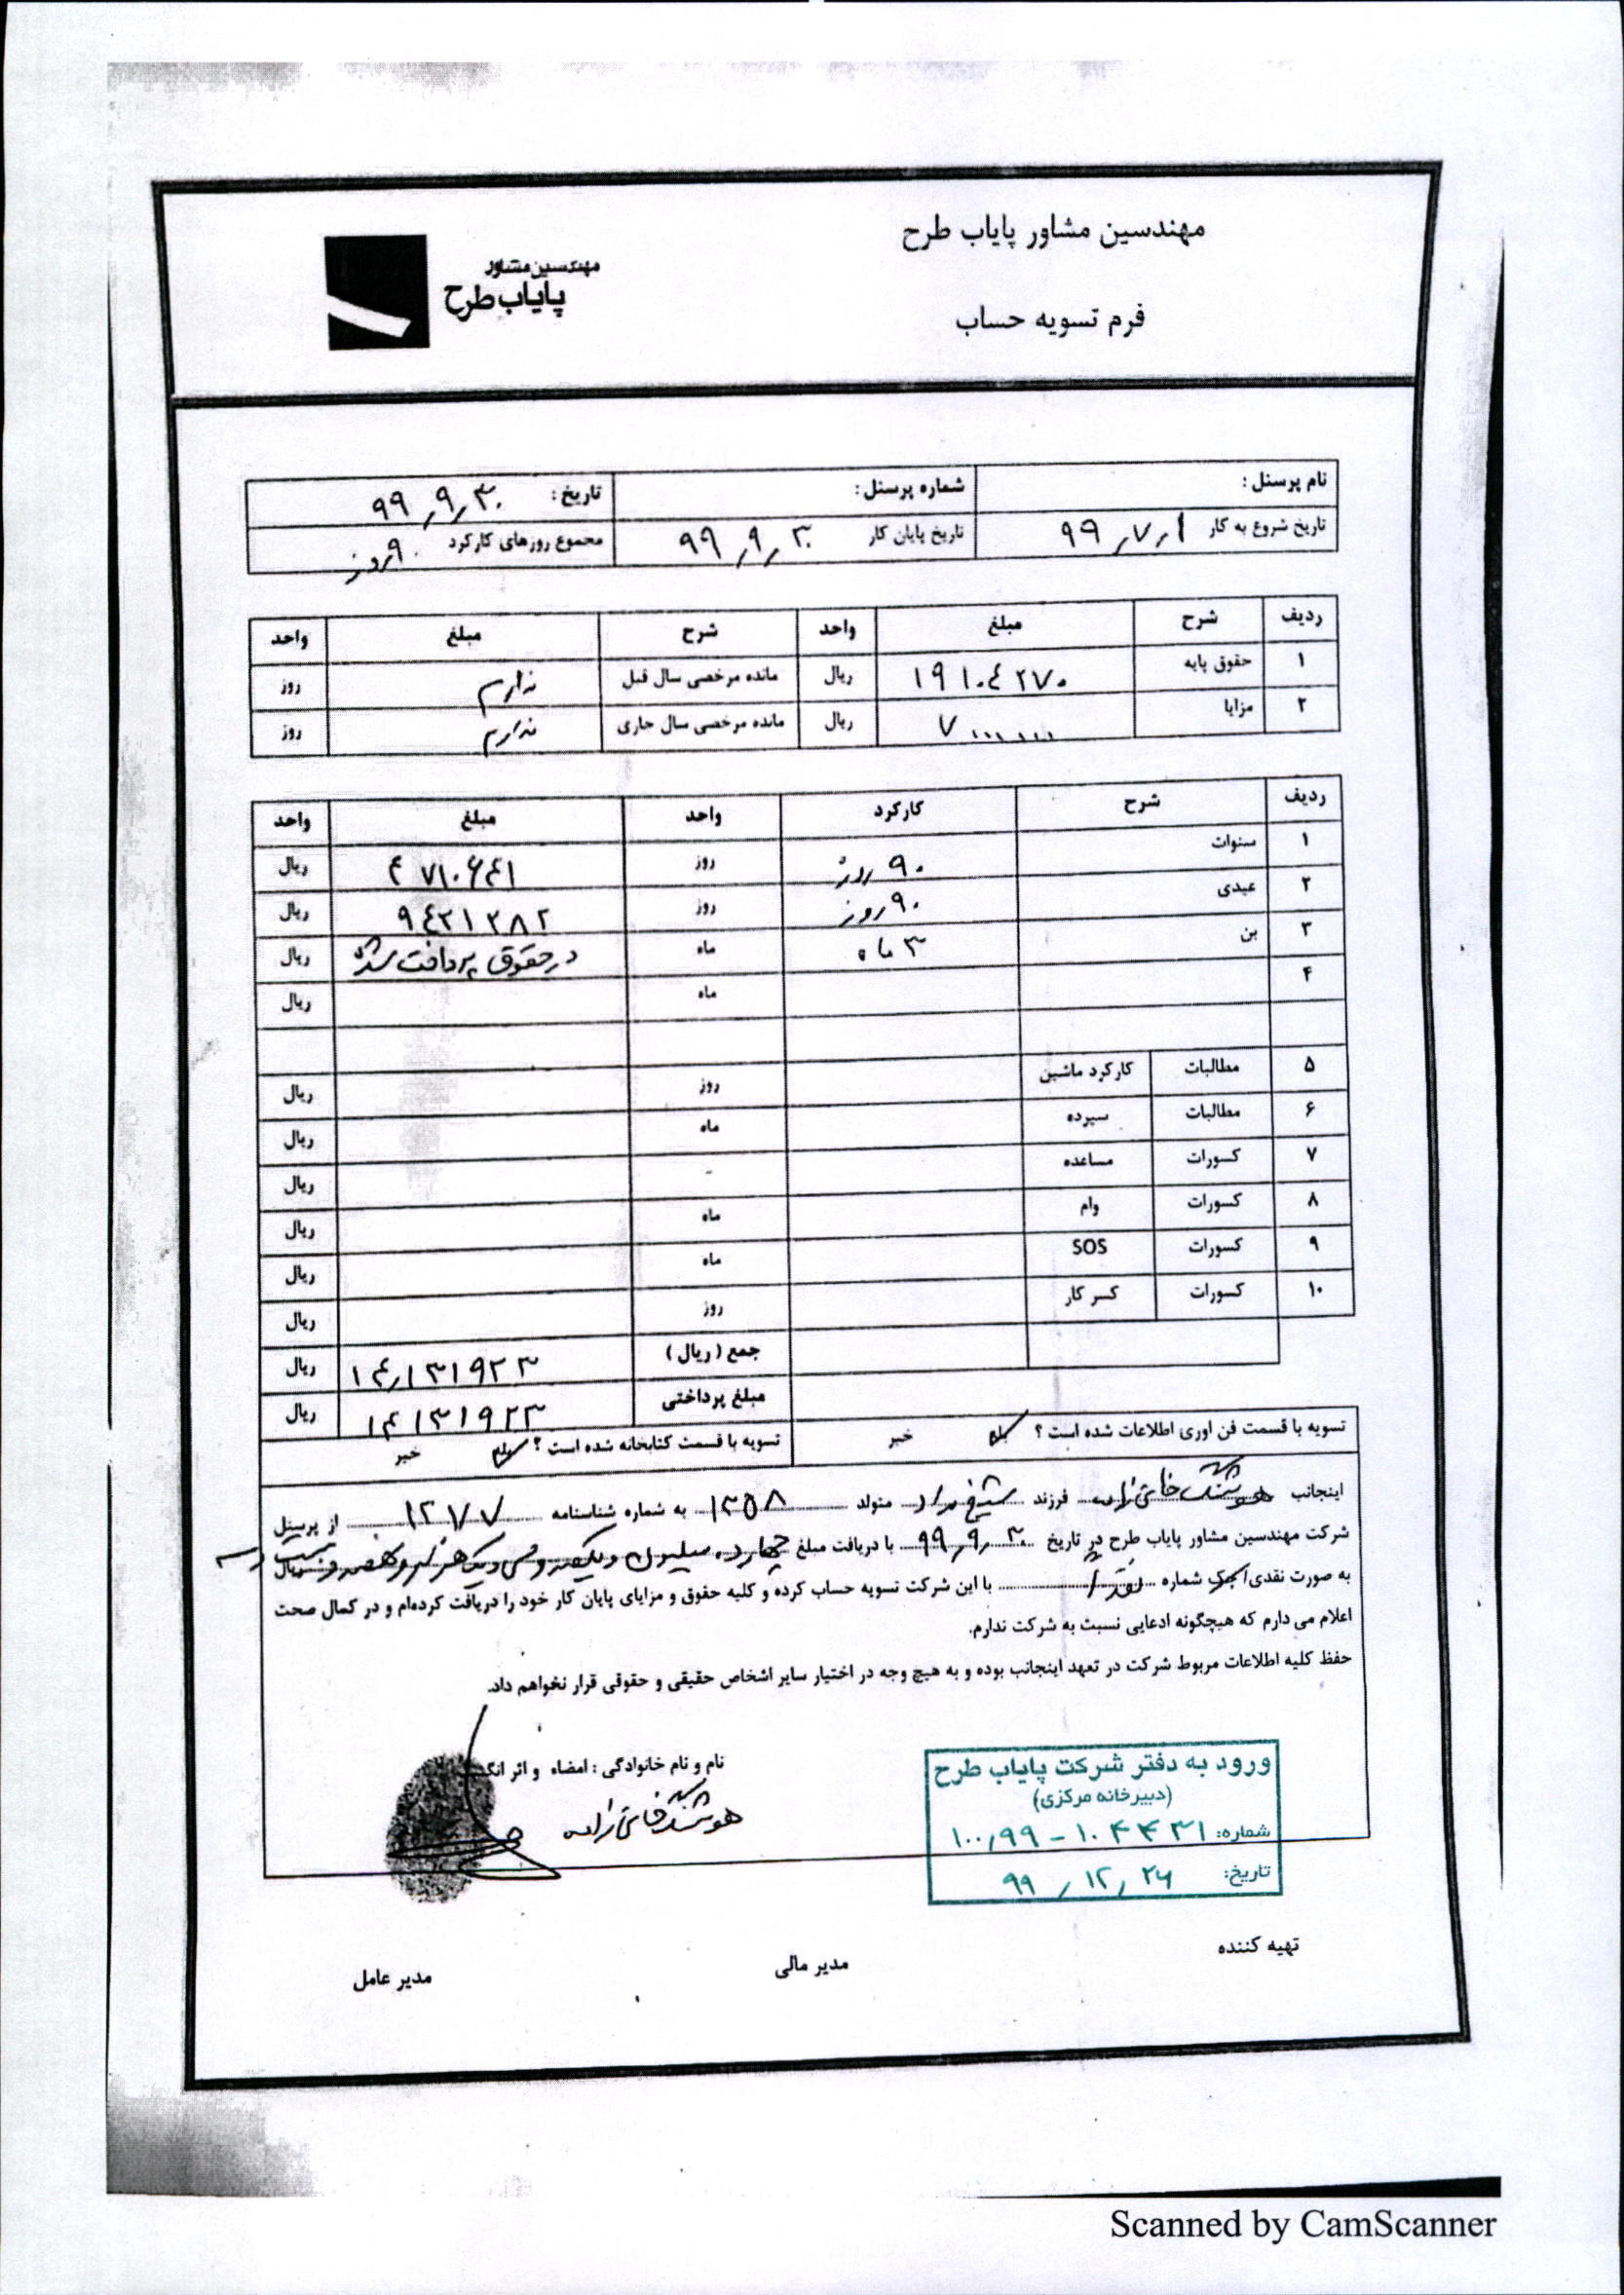 مهندسین مشاور پایاب طرح
مهندسین مشاور
پایاب طرح
فرم تسویه حساب
نام پرسنل : شماره پرسنل : تاریخ : ۹۹٫۹٫۳۰
تاریخ شروع به کار ۹۹٫۷٫۱ تاریخ پایان کار ۹۹٫۹٫۳۰ مجموع روزهای کارکرد ۹۰ روز
ردیف شرح مبلغ واحد شرح مبلغ واحد
۱ حقوق پایه ۱۹۱۰۴۲۷۰ ریال مانده مرخصی سال قبل ندارم روز
۲ مزایا ۷۰۰۰۰۰۰ ریال مانده مرخصی سال جاری ندارم روز
ردیف شرح کارکرد واحد مبلغ واحد
۱ سنوات ۹۰ روز روز ۴۷۱۰۶۴۱ ریال
۲ عیدی ۹۰ روز روز ۹۴۲۱۲۸۲ ریال
۳ بن ۳ ماه ماه در حقوق پرداخت شده ریال
۴ ماه ریال
۵ مطالبات کارکرد ماشین روز ریال
۶ مطالبات سپرده ماه ریال
۷ کسورات مساعده - ریال
۸ کسورات وام ماه ریال
۹ کسورات SOS ماه ریال
۱۰ کسورات کسر کار روز ریال
جمع (ریال) ۱۴٫۱۳۱۹۲۳ ریال
مبلغ پرداختی ۱۴۱۳۱۹۲۳ ریال
تسویه با قسمت فن اوری اطلاعات شده است ؟ بله خیر تسویه با قسمت کتابخانه شده است ؟ بله خیر
اینجانب هوشنگ فرزند متولد ۱۳۵۸ به شماره شناسنامه ۱۲۷۷ از پرسنل
شرکت مهندسین مشاور پایاب طرح در تاریخ ۹۹٫۹٫۳۰ با دریافت مبلغ چهارده میلیون و یکصد و سی و یک هزار و نهصد و بیست و سه ریال
به صورت نقدی/چک شماره نقدا با این شرکت تسویه حساب کرده و کلیه حقوق و مزایای پایان کار خود را دریافت کرده‌ام و در کمال صحت
اعلام می دارم که هیچگونه ادعایی نسبت به شرکت ندارم.
حفظ کلیه اطلاعات مربوط شرکت در تعهد اینجانب بوده و به هیچ وجه در اختیار سایر اشخاص حقیقی و حقوقی قرار نخواهم داد.
نام و نام خانوادگی : امضاء و اثر
هوشنگ
ورود به دفتر شرکت پایاب طرح
(دبیرخانه مرکزی)
شماره: ۱۰۰٫۹۹ - ۱۰۴۴۳۱
تاریخ: ۹۹٫۱۲٫۲۴
تهیه کننده مدیر مالی مدیر عامل
Scanned by CamScanner